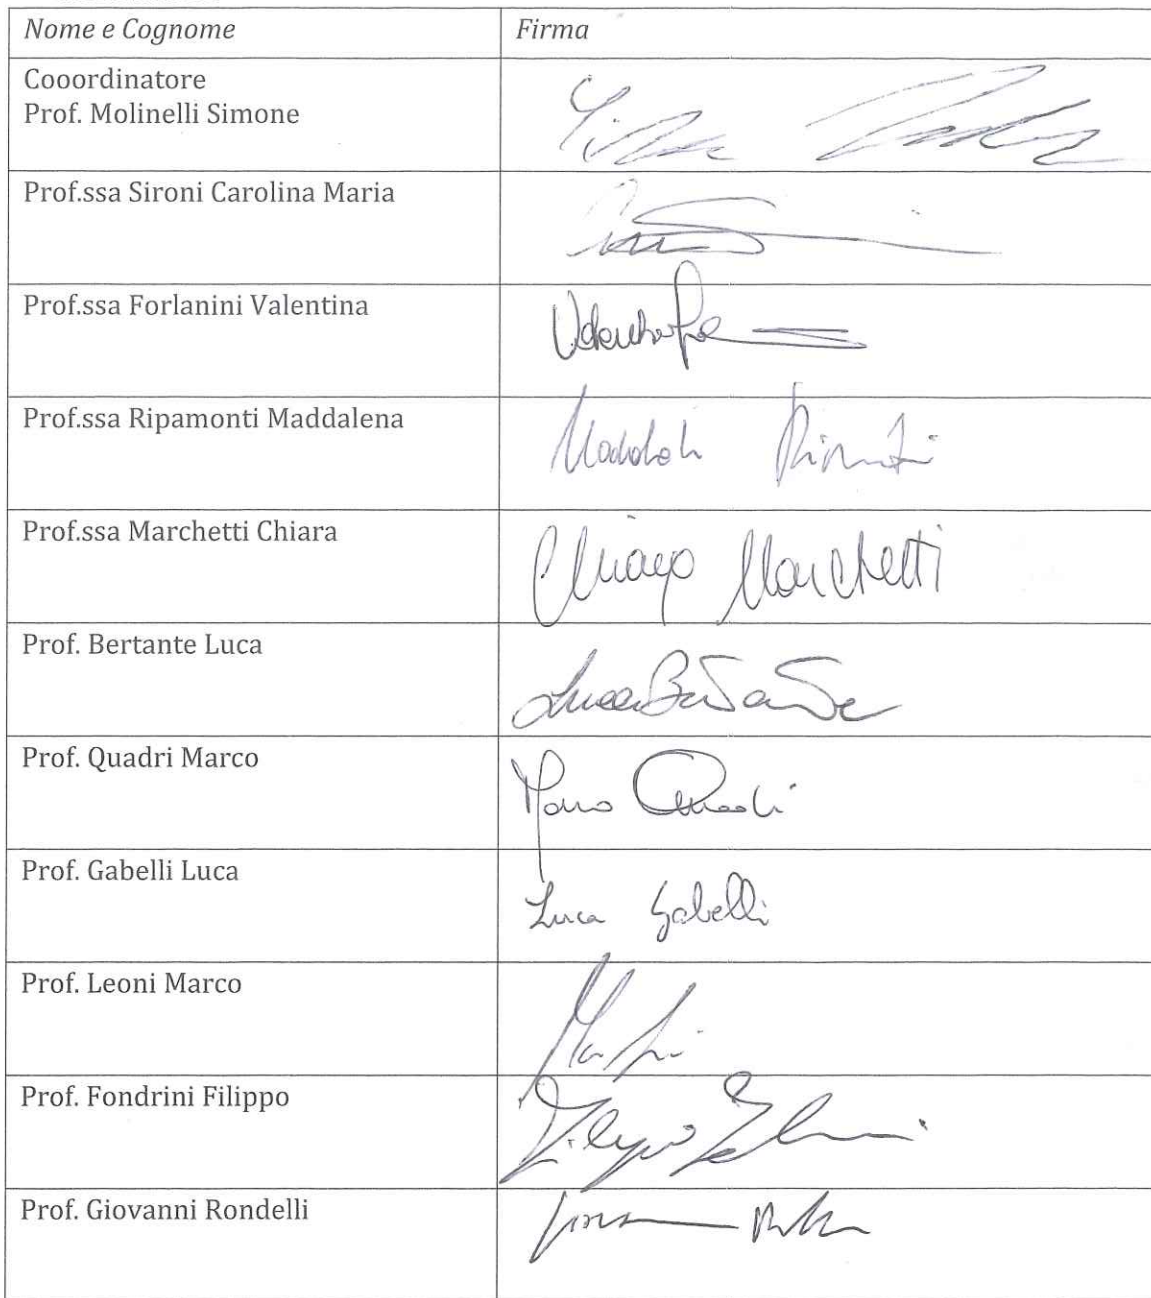 Nome e Cognome Firma
Cooordinatore
Prof. Molinelli Simone
Prof.ssa Sironi Carolina Maria
Prof.ssa Forlanini Valentina
Prof.ssa Ripamonti Maddalena
Prof.ssa Marchetti Chiara Chiara Marchetti
Prof. Bertante Luca Luca Bertante
Prof. Quadri Marco Marco Quadri
Prof. Gabelli Luca Luca Gabelli
Prof. Leoni Marco
Prof. Fondrini Filippo
Prof. Giovanni Rondelli